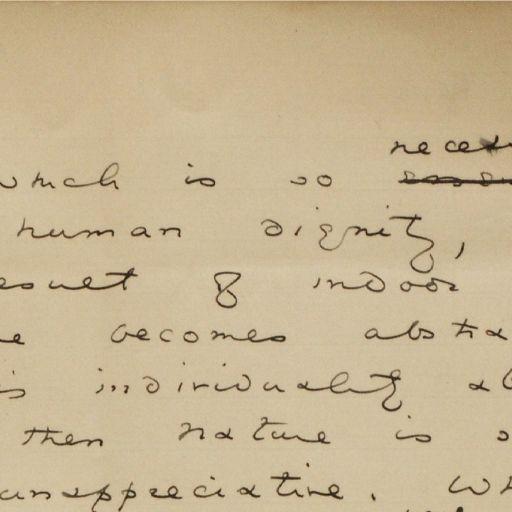 neces
which is so essen
human dignity,
result of indoor
becomes abstra
is individuality
then nature is
unappreciative. Wh